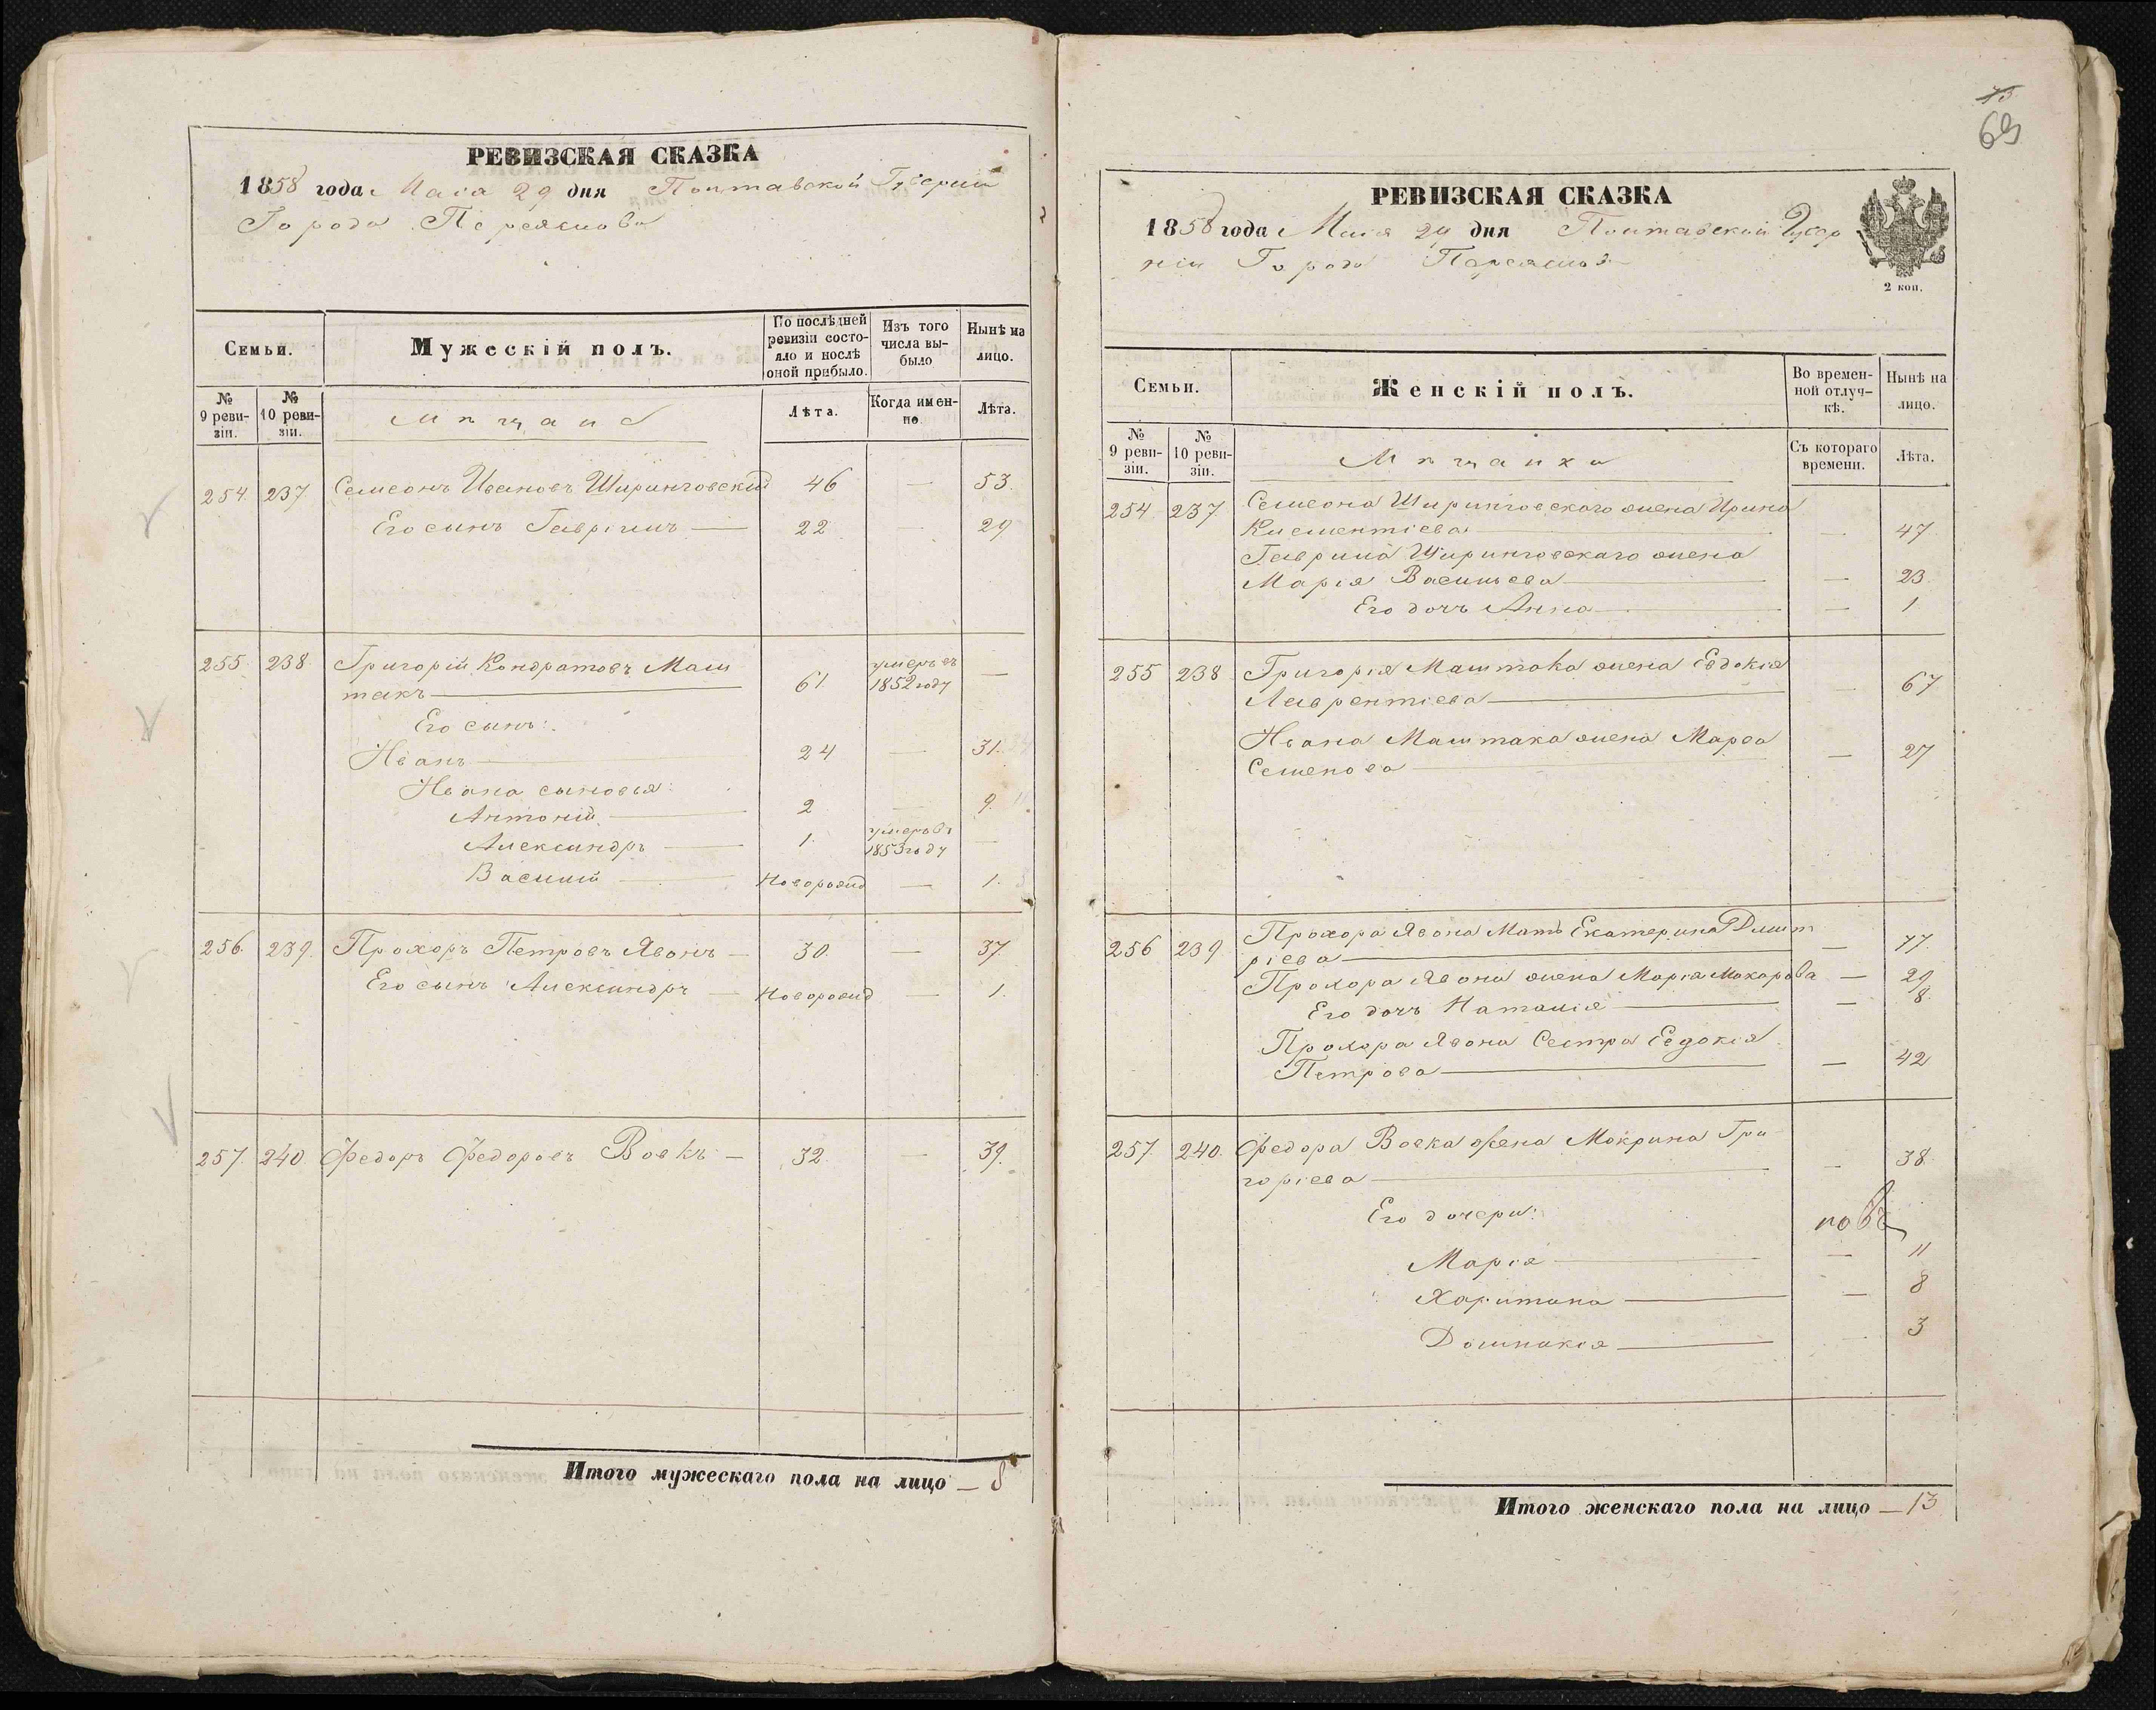 РЕВИЗСКАЯ СКАЗКА
1858 года Маія 29 дня Полтавской Губерніи
Города Переяслова
Семьи.
Мужескій полъ.
По послѣдней ревизіи состояло и послѣ оной прибыло.
Изъ того числа выбыло
Нынѣ на лицо.
№ 9 ревизіи.
№ 10 ревизіи.
Мѣщане
Лѣта.
Когда именно
Лѣта.
254. 237 Семеонъ Ивановъ Ширинговскій 46 — 53.
Его сынъ Гавріилъ — 22 — 29
255 238 Григорій Кондратовъ Маш
такъ — 61. умеръ въ 1852 году —
Его сынъ:
Иванъ — 24 — 31.
Ивана сыновья:
Антоній — 2 — 9.
Александръ — 1. умеръ въ 1853 году —
Василій — Новорожд — 1.
256. 239. Прохоръ Петровъ Явонъ — 30. — 37.
Его сынъ Александръ — Новорожд — 1.
257. 240 Федоръ Федоровъ Вовкъ — 32. — 39.
Итого мужескаго пола на лицо — 8
73
69
РЕВИЗСКАЯ СКАЗКА
1858 года Маія 29 дня Полтавской Губер
ніи Города Переяслова
2 коп.
Семьи.
Женскій полъ.
Во временной отлучкѣ.
Нынѣ на лицо.
№ 9 ревизіи.
№ 10 ревизіи.
Мѣщанки
Съ котораго времени.
Лѣта.
254. 237. Семеона Ширинговскаго жена Ирина
Климентіева — 47.
Гаврила Ширинговскаго жена
Марія Васильева — — 23.
Его дочь Анна — — 1
255 238 Григорія Маштака жена Евдокія
Лаврентіева — — 67
Ивана Маштака жена Марфа
Семенова — — 27
256 239 Прохора Явона Мать Екатерина Дмит
ріева — — 77.
Прохора Явона жена Марія Макарова — 29
Его дочь Наталія — — 8.
Прохора Явона Сестра Евдокія
Петрова — — 42
257. 240. Федора Вовка жена Мокрина Гри
горіева — — 38.
Его дочери:
Марія — — 11
Харитина — — 8
Домникія — 3
Итого женскаго пола на лицо — 13